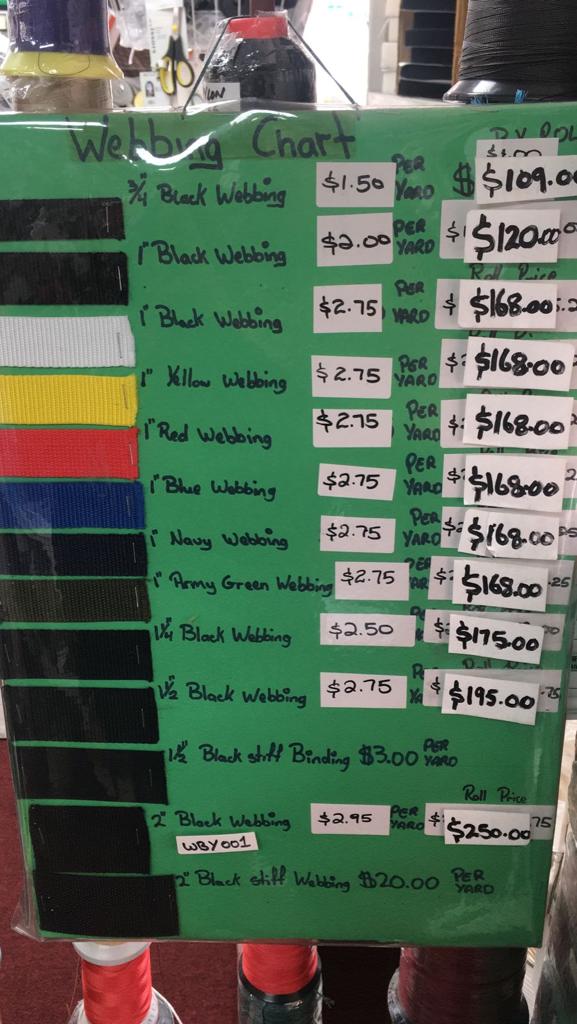 Webbing Chart
3/4" Black Webbing $1.50 PER YARD $109.00
1" Black Webbing $2.00 PER YARD $120.00
Roll Price
1" Black Webbing $2.75 PER YARD $168.00
1" Yellow Webbing $2.75 PER YARD $168.00
1" Red Webbing $2.75 PER YARD $168.00
1" Blue Webbing $2.75 PER YARD $168.00
1" Navy Webbing $2.75 PER YARD $168.00
1" Army Green Webbing $2.75 PER $168.00
1 1/4" Black Webbing $2.50 PER YARD $175.00
Roll Price
1 1/2" Black Webbing $2.75 $195.00
1 1/2" Black stiff Binding $3.00 PER YARD
Roll Price
2" Black Webbing $2.95 PER YARD $250.00
WBY001
2" Black stiff Webbing $20.00 PER YARD